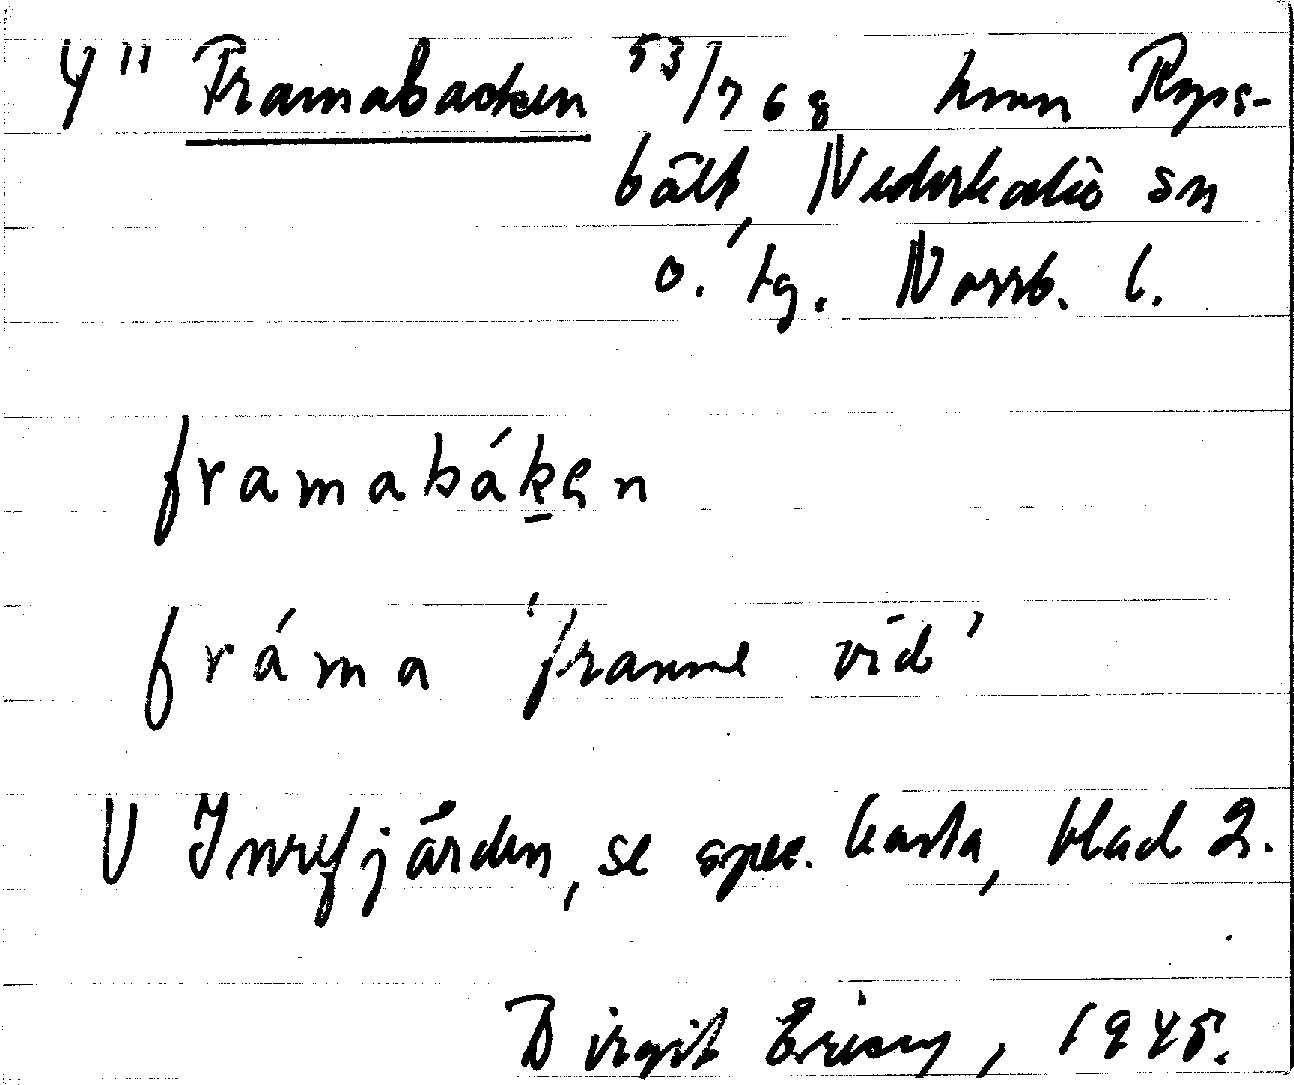 4" Framabacken 53/768 hmn Ryss-
bält, Nederkalix sn
o. tg. Norrb. l.
framabákẹn
fráma 'framme vid'
V Inrefjärden, se spec. karta, blad 2.
Birgit 1945.